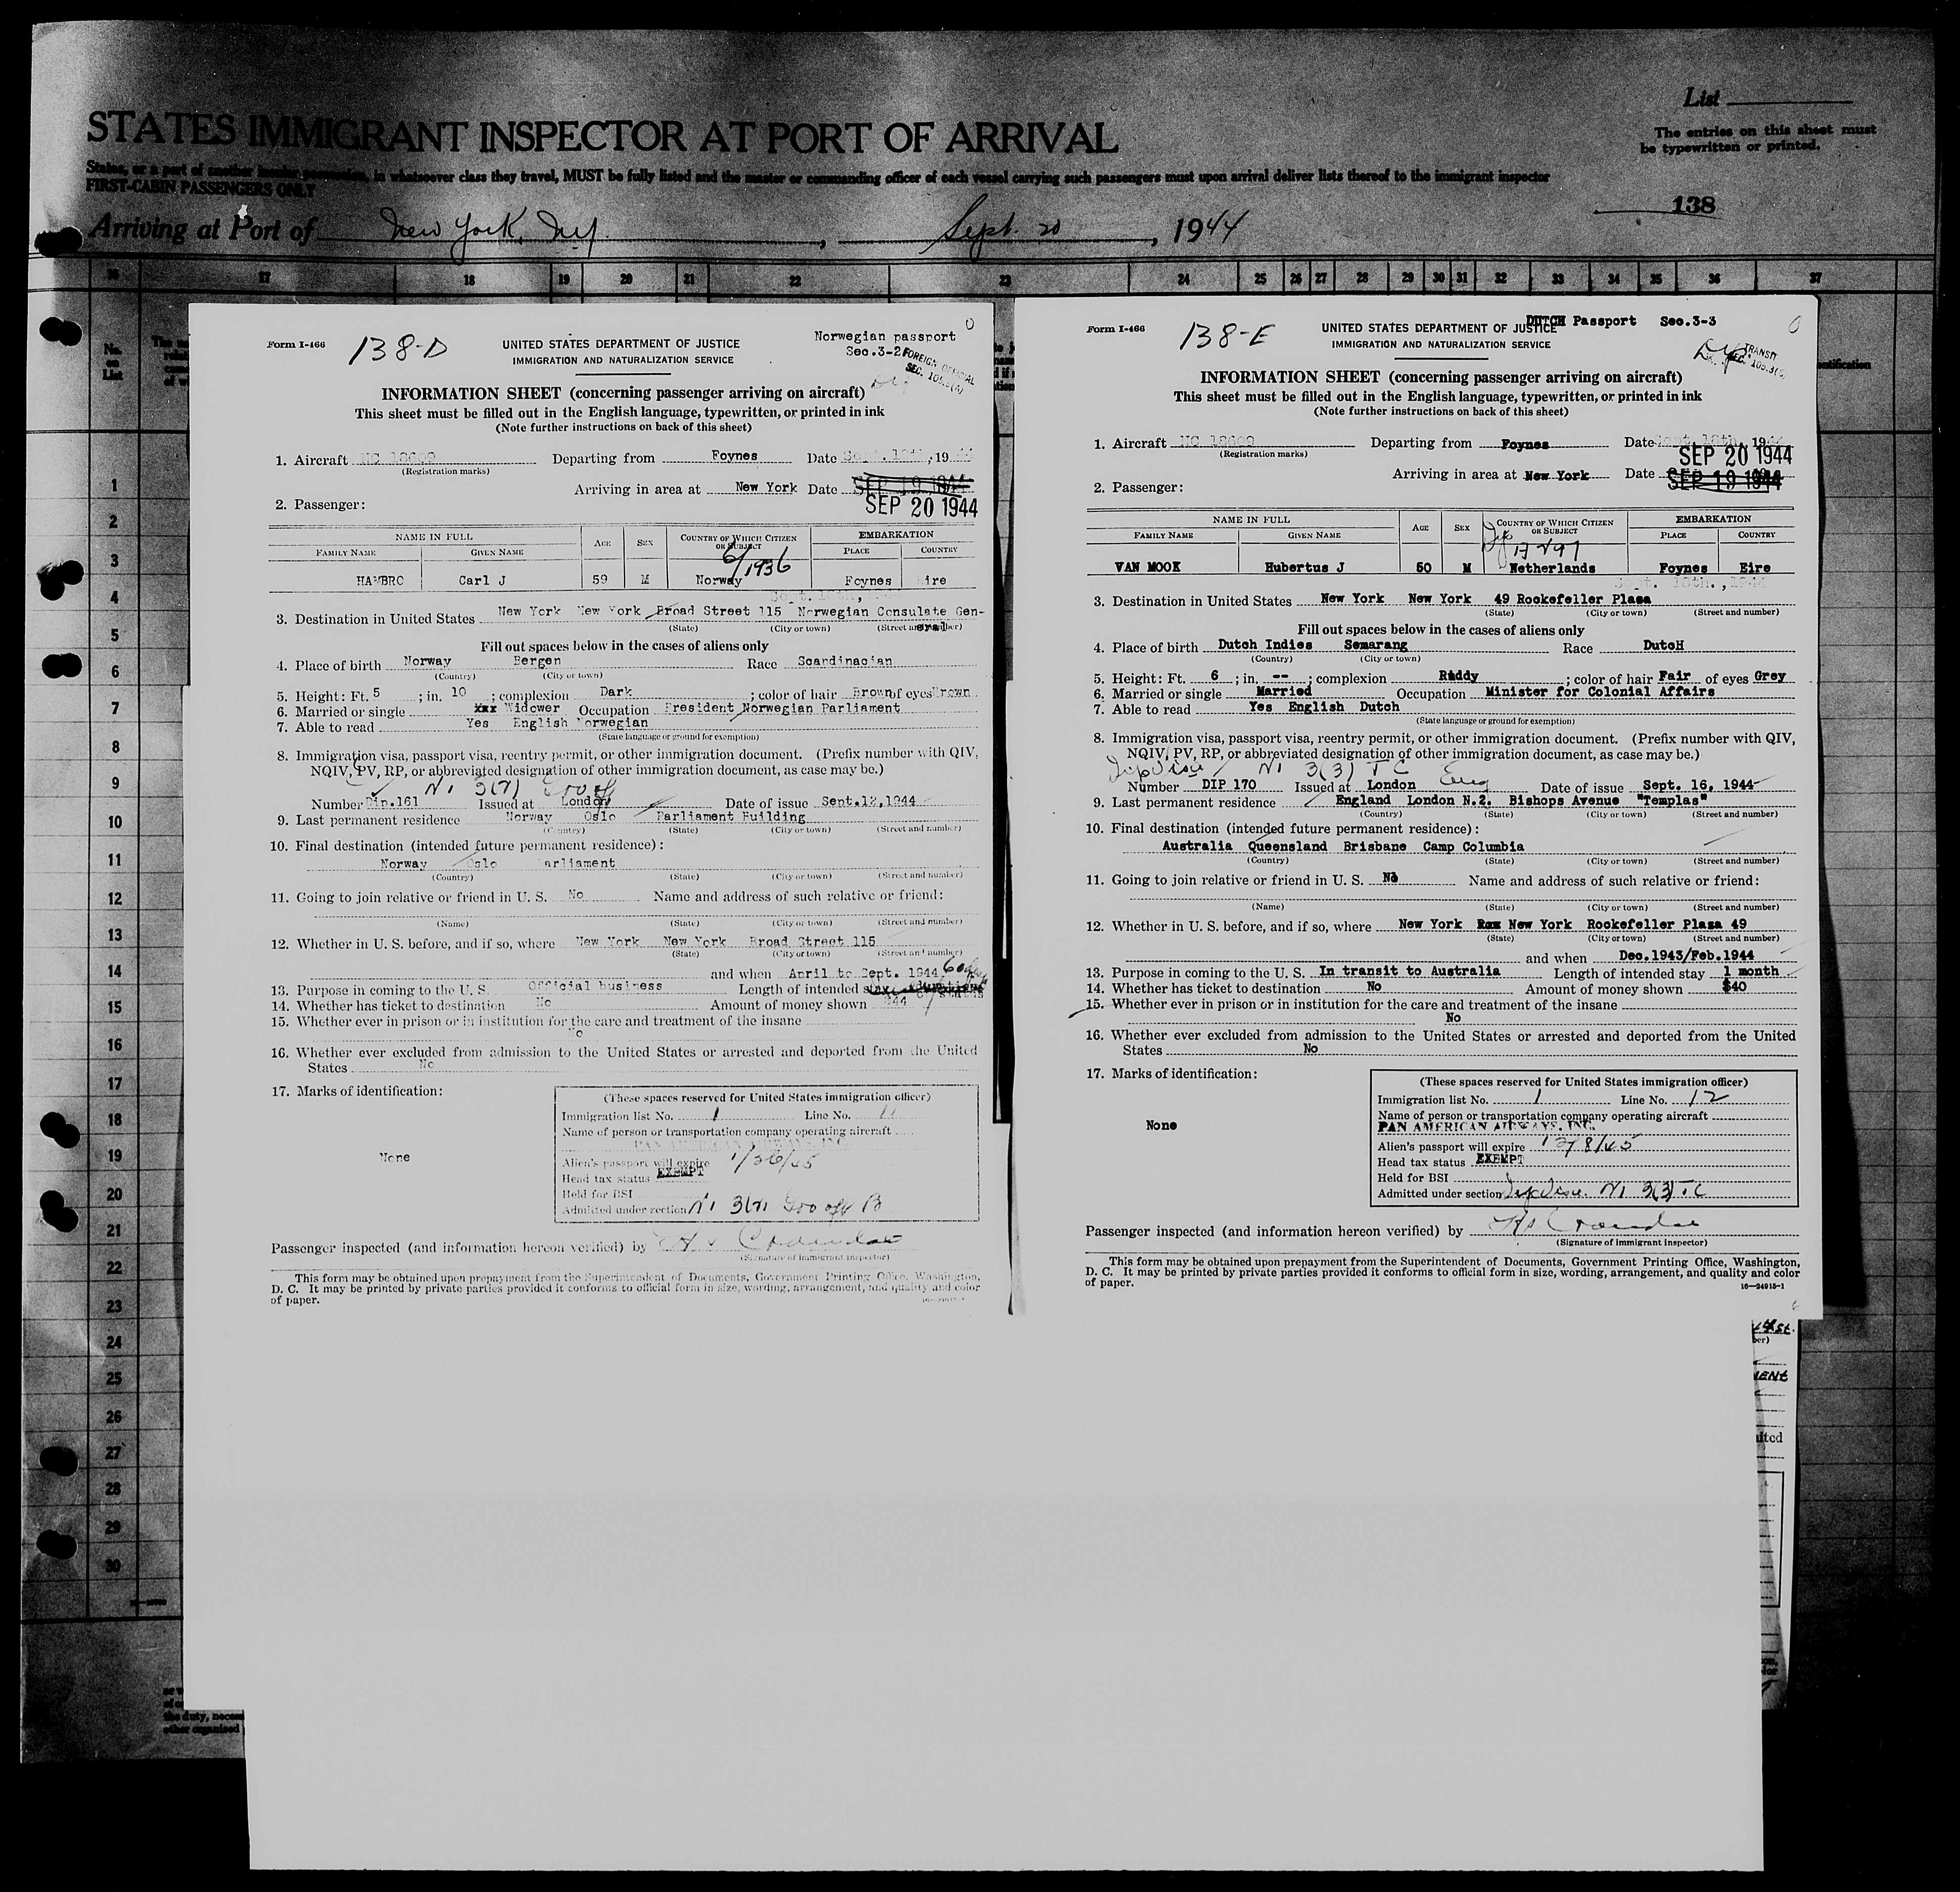 STATES IMMIGRANT INSPECTOR AT PORT OF ARRIVAL
List
The entries on this sheet must
be typewritten or printed.
States, or a part of another insular possession, in whatsoever class they travel, MUST be fully listed and the master or commanding officer of each vessel carrying such passengers must upon arrival deliver lists thereof to the immigrant inspector
FIRST-CABIN PASSENGERS ONLY
138
Arriving at Port of New York, N.Y., Sept. 20, 1944
16 17 18 19 20 21 22 23 24 25 26 27 28 29 30 31 32 33 34 35 36 37
No.
on
List
1
2
3
4
5
6
7
8
9
10
11
12
13
14
15
16
17
18
19
20
21
22
23
24
25
26
27
28
29
30
Form I-466
138-D
UNITED STATES DEPARTMENT OF JUSTICE
IMMIGRATION AND NATURALIZATION SERVICE
Norwegian passport
Sec.3-2
FOREIGN OFFICIAL
SEC. 105.3(4)
INFORMATION SHEET (concerning passenger arriving on aircraft)
This sheet must be filled out in the English language, typewritten, or printed in ink
(Note further instructions on back of this sheet)
1. Aircraft NC 18609 Departing from Foynes Date Sept. 18th, 1944
(Registration marks)
Arriving in area at New York Date SEP 19 1944
SEP 20 1944
2. Passenger:
NAME IN FULL AGE SEX COUNTRY OF WHICH CITIZEN OR SUBJECT EMBARKATION
FAMILY NAME GIVEN NAME PLACE COUNTRY
6/1936
HAMBRO Carl J 59 M Norway Foynes Eire
3. Destination in United States New York New York Broad Street 115 Norwegian Consulate General
(State) (City or town) (Street and number)
Fill out spaces below in the cases of aliens only
4. Place of birth Norway Bergen Race Scardinacian
(Country) (City or town)
5. Height: Ft. 5 ; in. 10 ; complexion Dark ; color of hair Brown of eyes Brown
6. Married or single xxx Widower Occupation President Norwegian Parliament
7. Able to read Yes English Norwegian
(State language or ground for exemption)
8. Immigration visa, passport visa, reentry permit, or other immigration document. (Prefix number with QIV,
NQIV, PV, RP, or abbreviated designation of other immigration document, as case may be.)
NI 3(7) Gov off
Number Dip.161 Issued at London Date of issue Sept.12,1944
9. Last permanent residence Norway Oslo Parliament Building
(Country) (State) (City or town) (Street and number)
10. Final destination (intended future permanent residence):
Norway Oslo Parliament
(Country) (State) (City or town) (Street and number)
11. Going to join relative or friend in U. S. No Name and address of such relative or friend:
(Name) (State) (City or town) (Street and number)
12. Whether in U. S. before, and if so, where New York New York Broad Street 115
(State) (City or town) (Street and number)
and when April to Sept. 1944
13. Purpose in coming to the U. S. Official business Length of intended stay
14. Whether has ticket to destination No Amount of money shown $44
15. Whether ever in prison or in institution for the care and treatment of the insane
No
16. Whether ever excluded from admission to the United States or arrested and deported from the United
States No
17. Marks of identification:
None
(These spaces reserved for United States immigration officer)
Immigration list No. 1 Line No. 11
Name of person or transportation company operating aircraft
PAN AMERICAN AIRWAYS, INC.
Alien's passport will expire 1/26/45
Head tax status EXEMPT
Held for BSI
Admitted under section NI 3(7) Gov off B
Passenger inspected (and information hereon verified) by
(Signature of immigrant inspector)
This form may be obtained upon prepayment from the Superintendent of Documents, Government Printing Office, Washington,
D. C. It may be printed by private parties provided it conforms to official form in size, wording, arrangement, and quality and color
of paper.
Form I-466
138-E
UNITED STATES DEPARTMENT OF JUSTICE
IMMIGRATION AND NATURALIZATION SERVICE
DUTCH Passport Sec.3-3
TRANSIT
SEC. 105.3(4)
INFORMATION SHEET (concerning passenger arriving on aircraft)
This sheet must be filled out in the English language, typewritten, or printed in ink
(Note further instructions on back of this sheet)
1. Aircraft NC 18609 Departing from Foynes Date Sept. 18th, 1944
(Registration marks)
SEP 20 1944
Arriving in area at New York Date SEP 19 1944
2. Passenger:
NAME IN FULL AGE SEX COUNTRY OF WHICH CITIZEN OR SUBJECT EMBARKATION
FAMILY NAME GIVEN NAME PLACE COUNTRY
VAN MOOK Hubertus J 50 M Netherlands Foynes Eire
Sept. 18th., 1944
3. Destination in United States New York New York 49 Rockefeller Plaza
(State) (City or town) (Street and number)
Fill out spaces below in the cases of aliens only
4. Place of birth Dutch Indies Semarang Race DutcH
(Country) (City or town)
5. Height: Ft. 6 ; in. -- ; complexion Ruddy ; color of hair Fair of eyes Grey
6. Married or single Married Occupation Minister for Colonial Affairs
7. Able to read Yes English Dutch
(State language or ground for exemption)
8. Immigration visa, passport visa, reentry permit, or other immigration document. (Prefix number with QIV,
NQIV, PV, RP, or abbreviated designation of other immigration document, as case may be.)
Dip Visa NI 3(3) TC Eng
Number DIP 170 Issued at London Date of issue Sept. 16, 1944
9. Last permanent residence England London N.2. Bishops Avenue "Templas"
(Country) (State) (City or town) (Street and number)
10. Final destination (intended future permanent residence):
Australia Queensland Brisbane Camp Columbia
(Country) (State) (City or town) (Street and number)
11. Going to join relative or friend in U. S. No Name and address of such relative or friend:
(Name) (State) (City or town) (Street and number)
12. Whether in U. S. before, and if so, where New York New York Rockefeller Plaza 49
(State) (City or town) (Street and number)
and when Dec.1943/Feb.1944
13. Purpose in coming to the U. S. In transit to Australia Length of intended stay 1 month
14. Whether has ticket to destination No Amount of money shown $40
15. Whether ever in prison or in institution for the care and treatment of the insane
No
16. Whether ever excluded from admission to the United States or arrested and deported from the United
States No
17. Marks of identification:
None
(These spaces reserved for United States immigration officer)
Immigration list No. 1 Line No. 12
Name of person or transportation company operating aircraft
PAN AMERICAN AIRWAYS, INC.
Alien's passport will expire
Head tax status EXEMPT
Held for BSI
Admitted under section Dip Visa NI 3(3) TC
Passenger inspected (and information hereon verified) by
(Signature of immigrant inspector)
This form may be obtained upon prepayment from the Superintendent of Documents, Government Printing Office, Washington,
D. C. It may be printed by private parties provided it conforms to official form in size, wording, arrangement, and quality and color
of paper.
16—24915-1
the duty, neces
other organized